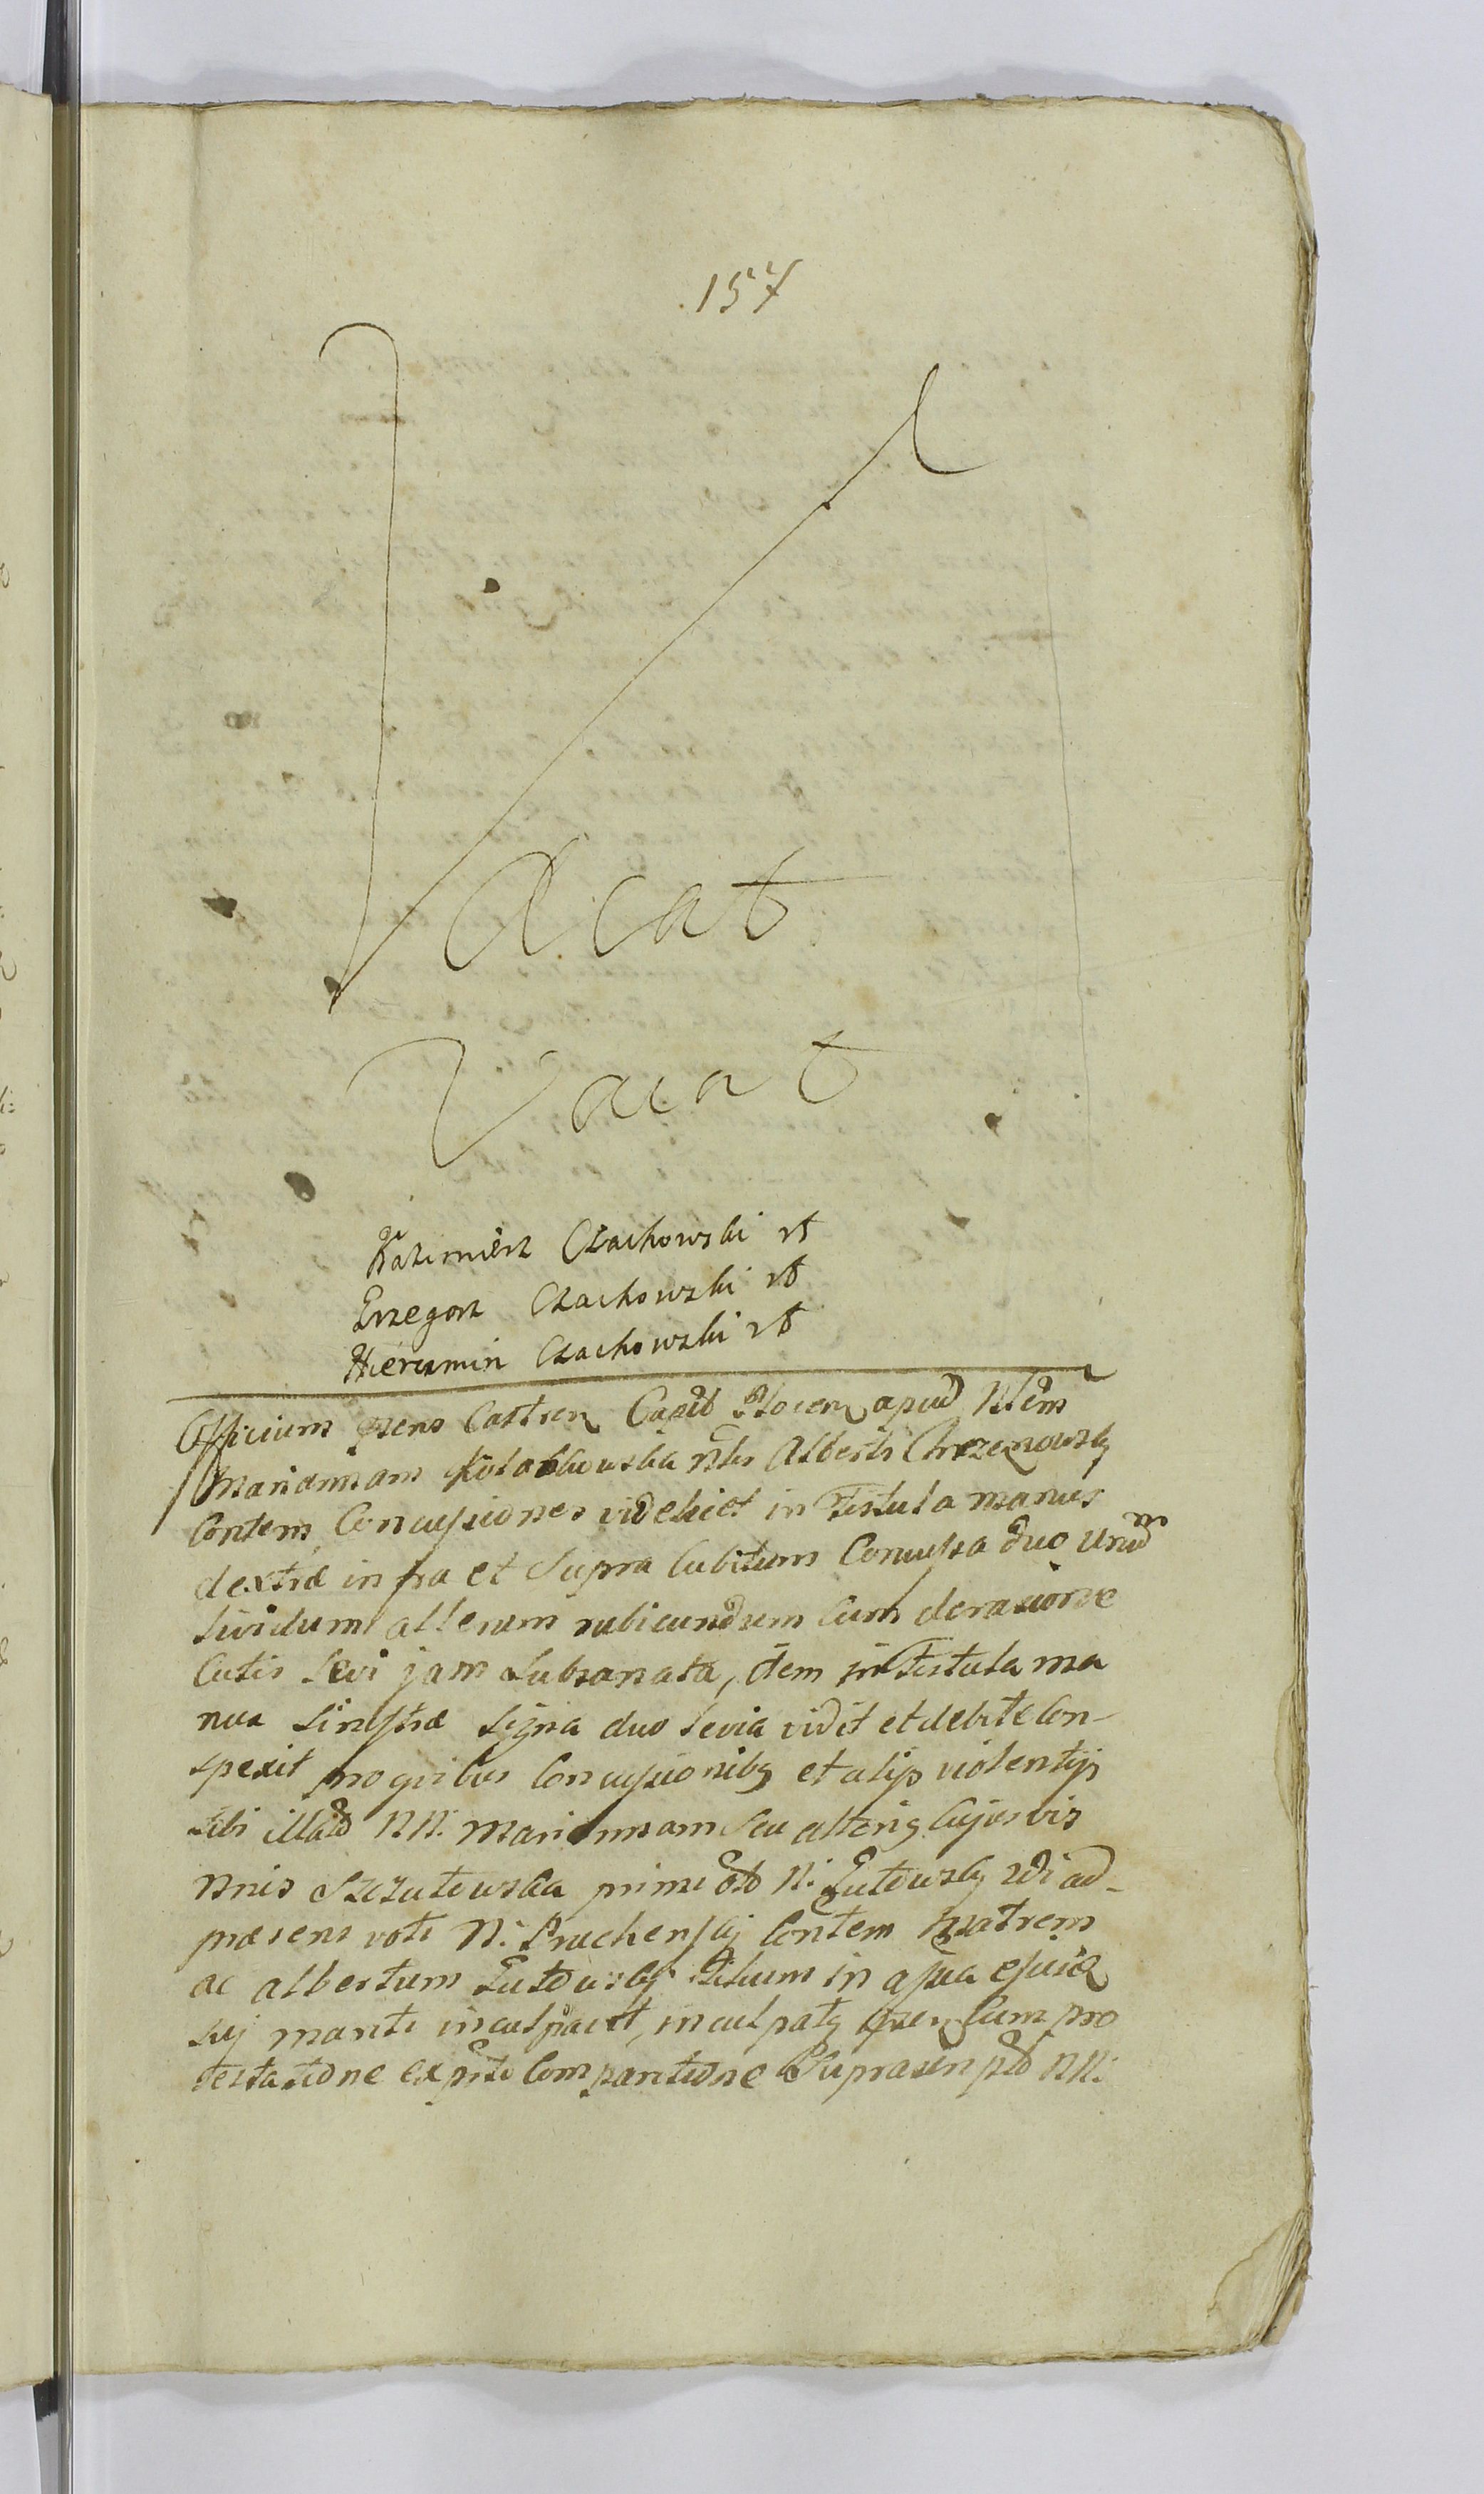 157
Vacat
Vacat
Kazimierz Czachowski rb
Grzegorz Czachowski rb
Hieramin Czachowski rb
Officium prens Castren Capit Plocen apud Nlem
Mariannam Kolakowska Nlis Alberti Chrzczonowsky
Contem, Concussiones videlicet in fistula manus
dextræ infra et supra Cubitum Concussa duo unum
lividum alterum rubicundum Cum derasione
Cutis levi jam subsanata, item in fistula ma
nus sinistræ signa duo levia vidit et debite Con-
spexit pro quibus Concussionibg et alijs violentijs
sibi illatis NN. Mariannam seu alterig Cujusvis
Nnis Szczutowska primi oto N. Gutowsky 2di ad-
præsens voti N. Pruchensky Contem Matrem
ac Albertum Gutowsky filium in aqua ejusq
suj mariti inculpavit, inculpatq præn Cum pro
testatione ex pnti Comparitione suprascri pto NN.